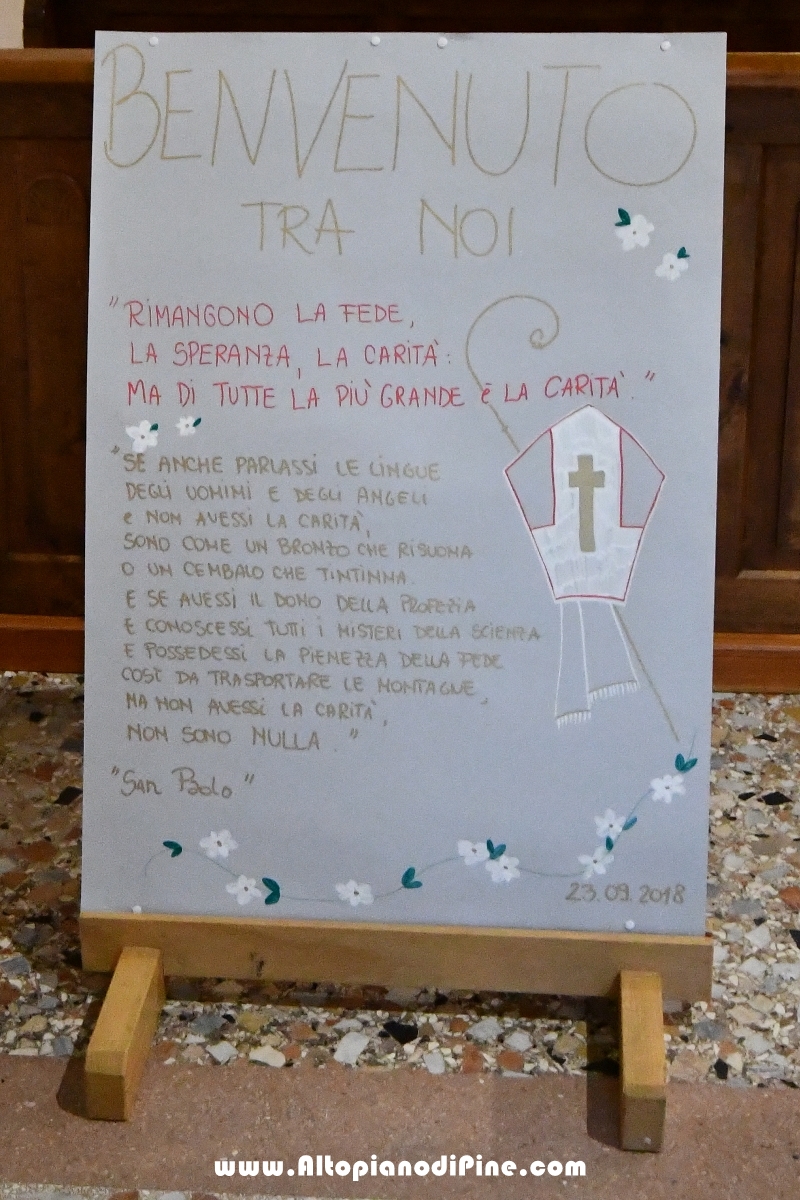 BENVENUTO
TRA NOI
"RIMANGONO LA FEDE,
LA SPERANZA, LA CARITÀ:
MA DI TUTTE LA PIÙ GRANDE è LA CARITÀ."
"SE ANCHE PARLASSI LE LINGUE
DEGLI UOMINI E DEGLI ANGELI
e NON AVESSI LA CARITÀ,
SONO COME UN BRONZO CHE RISUONA
O UN CEMBALO CHE TINTINNA.
E SE AVESSI IL DONO DELLA PROFEZIA
E CONOSCESSI TUTTI I MISTERI DELLA SCIENZA
E POSSEDESSI LA PIENEZZA DELLA FEDE
COSÌ DA TRASPORTARE LE MONTAGNE,
MA NON AVESSI LA CARITÀ,
NON SONO NULLA."
"San Paolo"
23.09.2018
www.AltopianodiPine.com